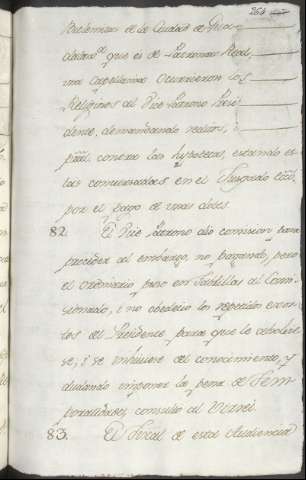 264
Betlemitas de la Ciudad de Gua-
dalaxª que es de Patronato Real,
una Capellania Ocurrieron los
Religiosos al Vice Patrono Presi-
dente, demandando reditos,
contra las hypotecas, estando es-
tas concursadas en el Juzgado
por el pago de unas dotes
82. El Vice Patrono dio comision para
proceder al embargo, no pagando, pero
el Ordinario puso en Tablillas al Comi-
sionado, i no obedecio los repetidos exor-
tos del Presidente para que le absolvie-
se, i se inhibiese del conocimiento, y
dudando imponer la pena de Tem-
poralidades, consultó al Virrei.
83. El Fiscal de esta Audiencia